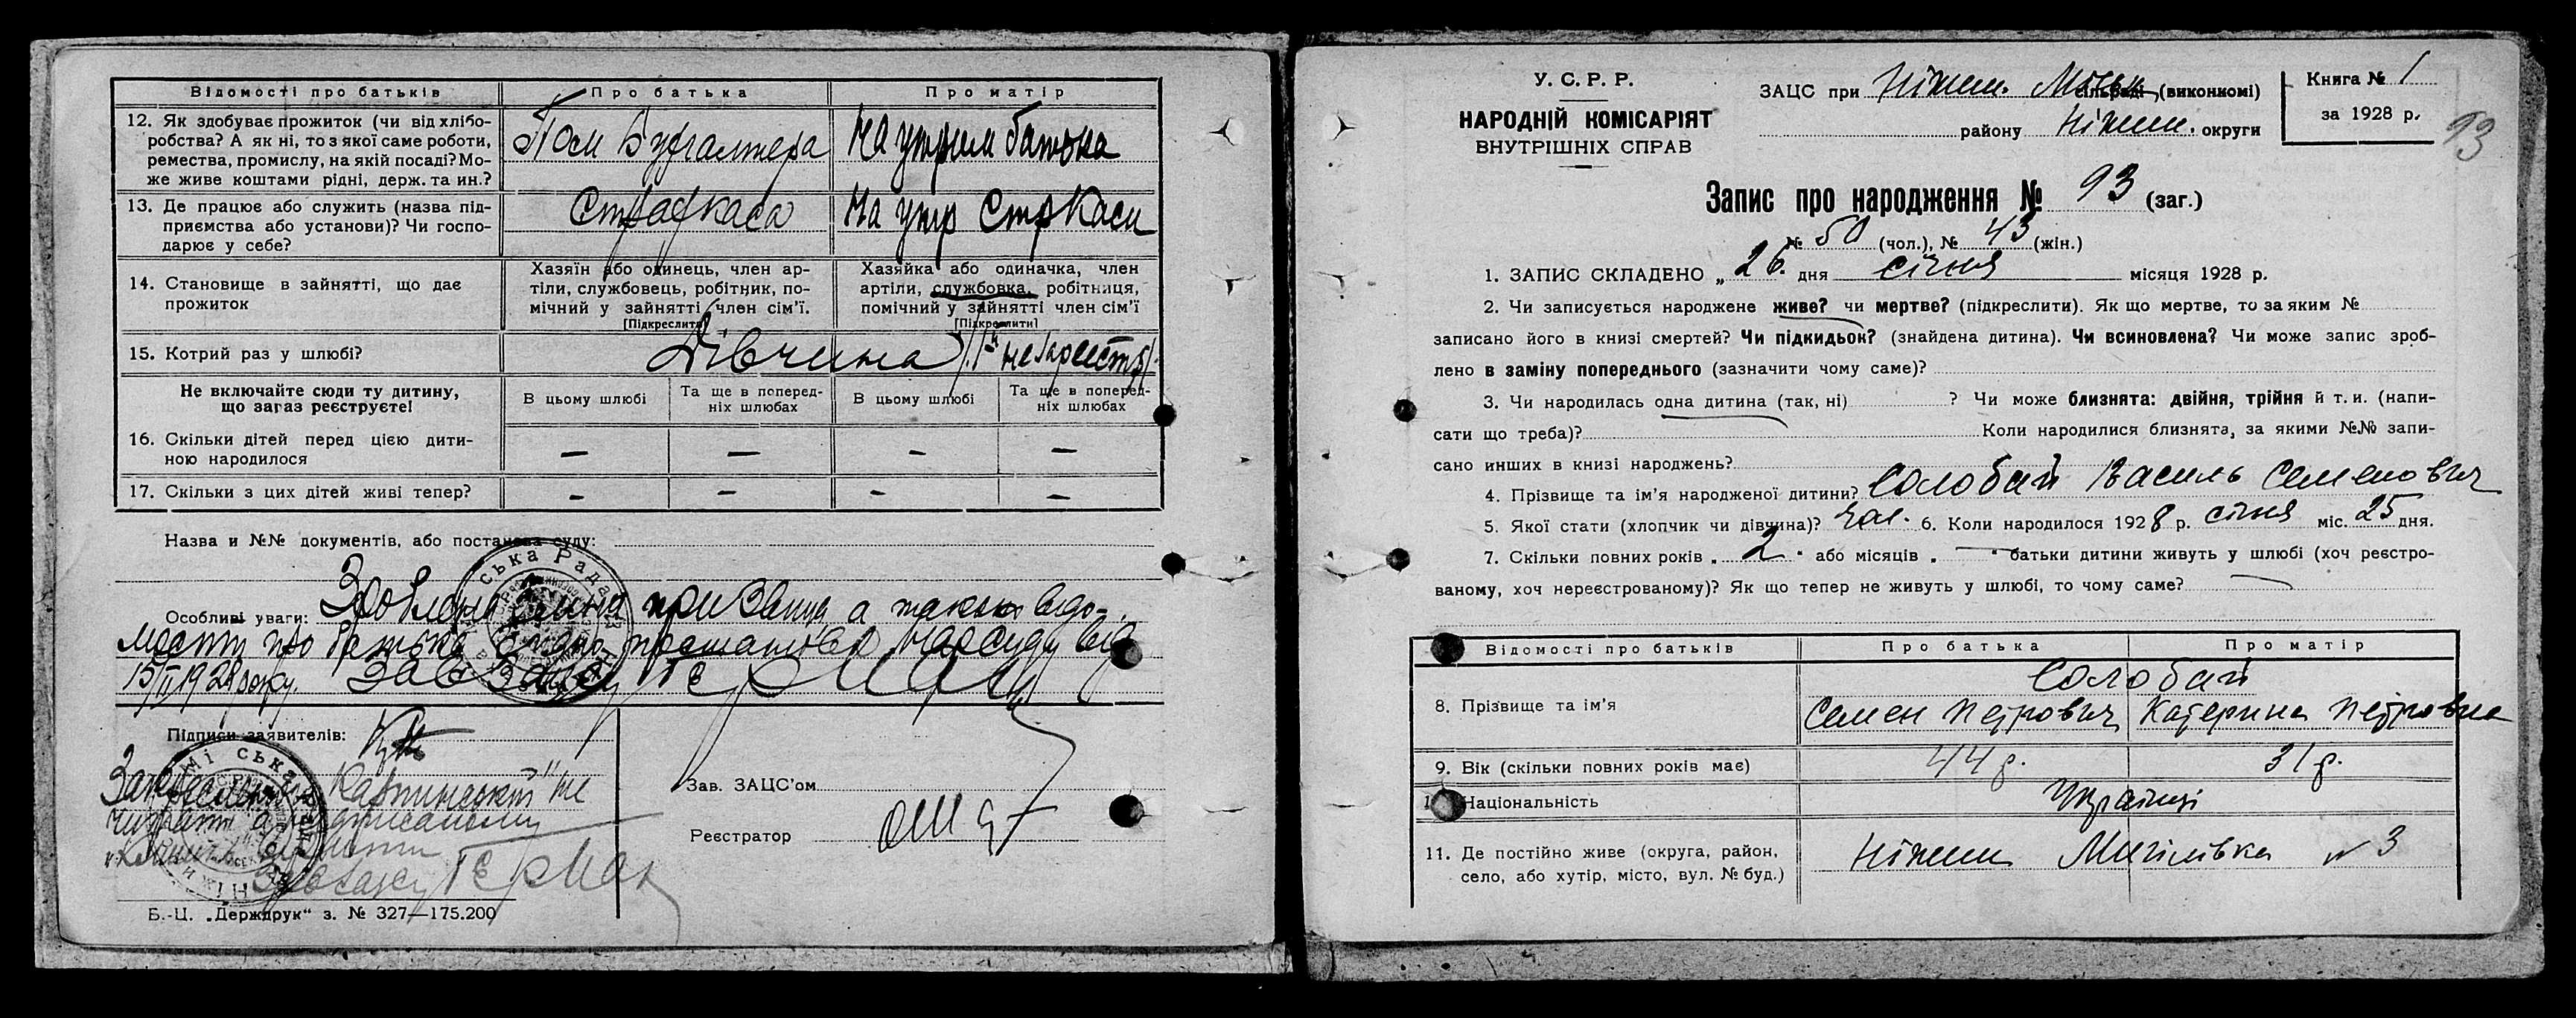 Відомості про батьків Про батька Про матір
12. Як здобуває прожиток (чи від хлібо-
робства? А як ні, то з якої саме роботи,
ремества, промислу, на якій посаді? Мо-
же живе коштами рідні, держ. та ин.?
Пом Бухгалтера На утрим батька
13. Де працює або служить (назва під-
приємства або установи)? Чи госпо-
дарює у себе?
Страхкаса На утр СтрКаси
14. Становище в зайнятті, що дає
прожиток
Хазяїн або одинець, член ар-
тіли, службовець, робітник, по-
мічний у зайнятті член сім'ї.
[Підкреслити]
Хазяйка або одиначка, член
артіли, службовка, робітниця,
помічний у зайнятті член сім'ї
[Підкреслити]
15. Котрий раз у шлюбі? Дівчина незареєстр.
Не включайте сюди ту дитину,
що загаз реєструєте!
В цьому шлюбі Та ще в поперед-
ніх шлюбах В цьому шлюбі Та ще в поперед-
ніх шлюбах
16. Скільки дітей перед цією дити-
ною народилося — — — —
17. Скільки з цих дітей живі тепер? — — — —
Назва и №№ документів, або постанова суду:
Особливі уваги: Зроблена зміна призвища а також відо-
мости про батька згідно постанови Нарсуду від
15/II 1928 року. Зав Загсу Герман
Підписи заявителів:
Закреслено
Завзагсу Герман
Зав. ЗАЦС'ом
Реєстратор
Б.-Ц. „Держдрук“ з. № 327—175.200
У. С. Р. Р.
НАРОДНІЙ КОМІСАРІЯТ
ВНУТРІШНІХ СПРАВ
ЗАЦС при Ніжин. Міськ (виконкомі)
району Ніжин. округи
Книга № 1
за 1928 р.
93
Запис про народження № 93 (заг.)
№ 50 (чол.), № 43 (жін.)
1. ЗАПИС СКЛАДЕНО „ 26. дня січня місяця 1928 р.
2. Чи записується народжене живе? чи мертве? (підкреслити). Як що мертве, то за яким №
записано його в книзі смертей? Чи підкидьок? (знайдена дитина). Чи всиновлена? Чи може запис зроб-
лено в заміну попереднього (зазначити чому саме)?
3. Чи народилась одна дитина (так, ні) ? Чи може близнята: двійня, трійня й т. и. (напи-
сати що треба)? Коли народилися близнята, за якими №№ запи-
сано инших в книзі народжень?
4. Прізвище та ім'я народженої дитини? Солобай Василь Семенович
5. Якої стати (хлопчик чи дівчина)? чол. 6. Коли народилося 1928 р. січня міс. 25 дня.
7. Скільки повних років „ 2 “ або місяців „ — “ батьки дитини живуть у шлюбі (хоч реєстро-
ваному, хоч нереєстрованому)? Як що тепер не живуть у шлюбі, то чому саме?
Відомості про батьків Про батька Про матір
Солобай
8. Прізвище та ім'я Семен Петрович Катерина Петровна
9. Вік (скільки повних років має) 44 р. 31 р.
Національність Українці
11. Де постійно живе (округа, район,
село, або хутір, місто, вул. № буд.)
Ніжин Мигілівка № 3